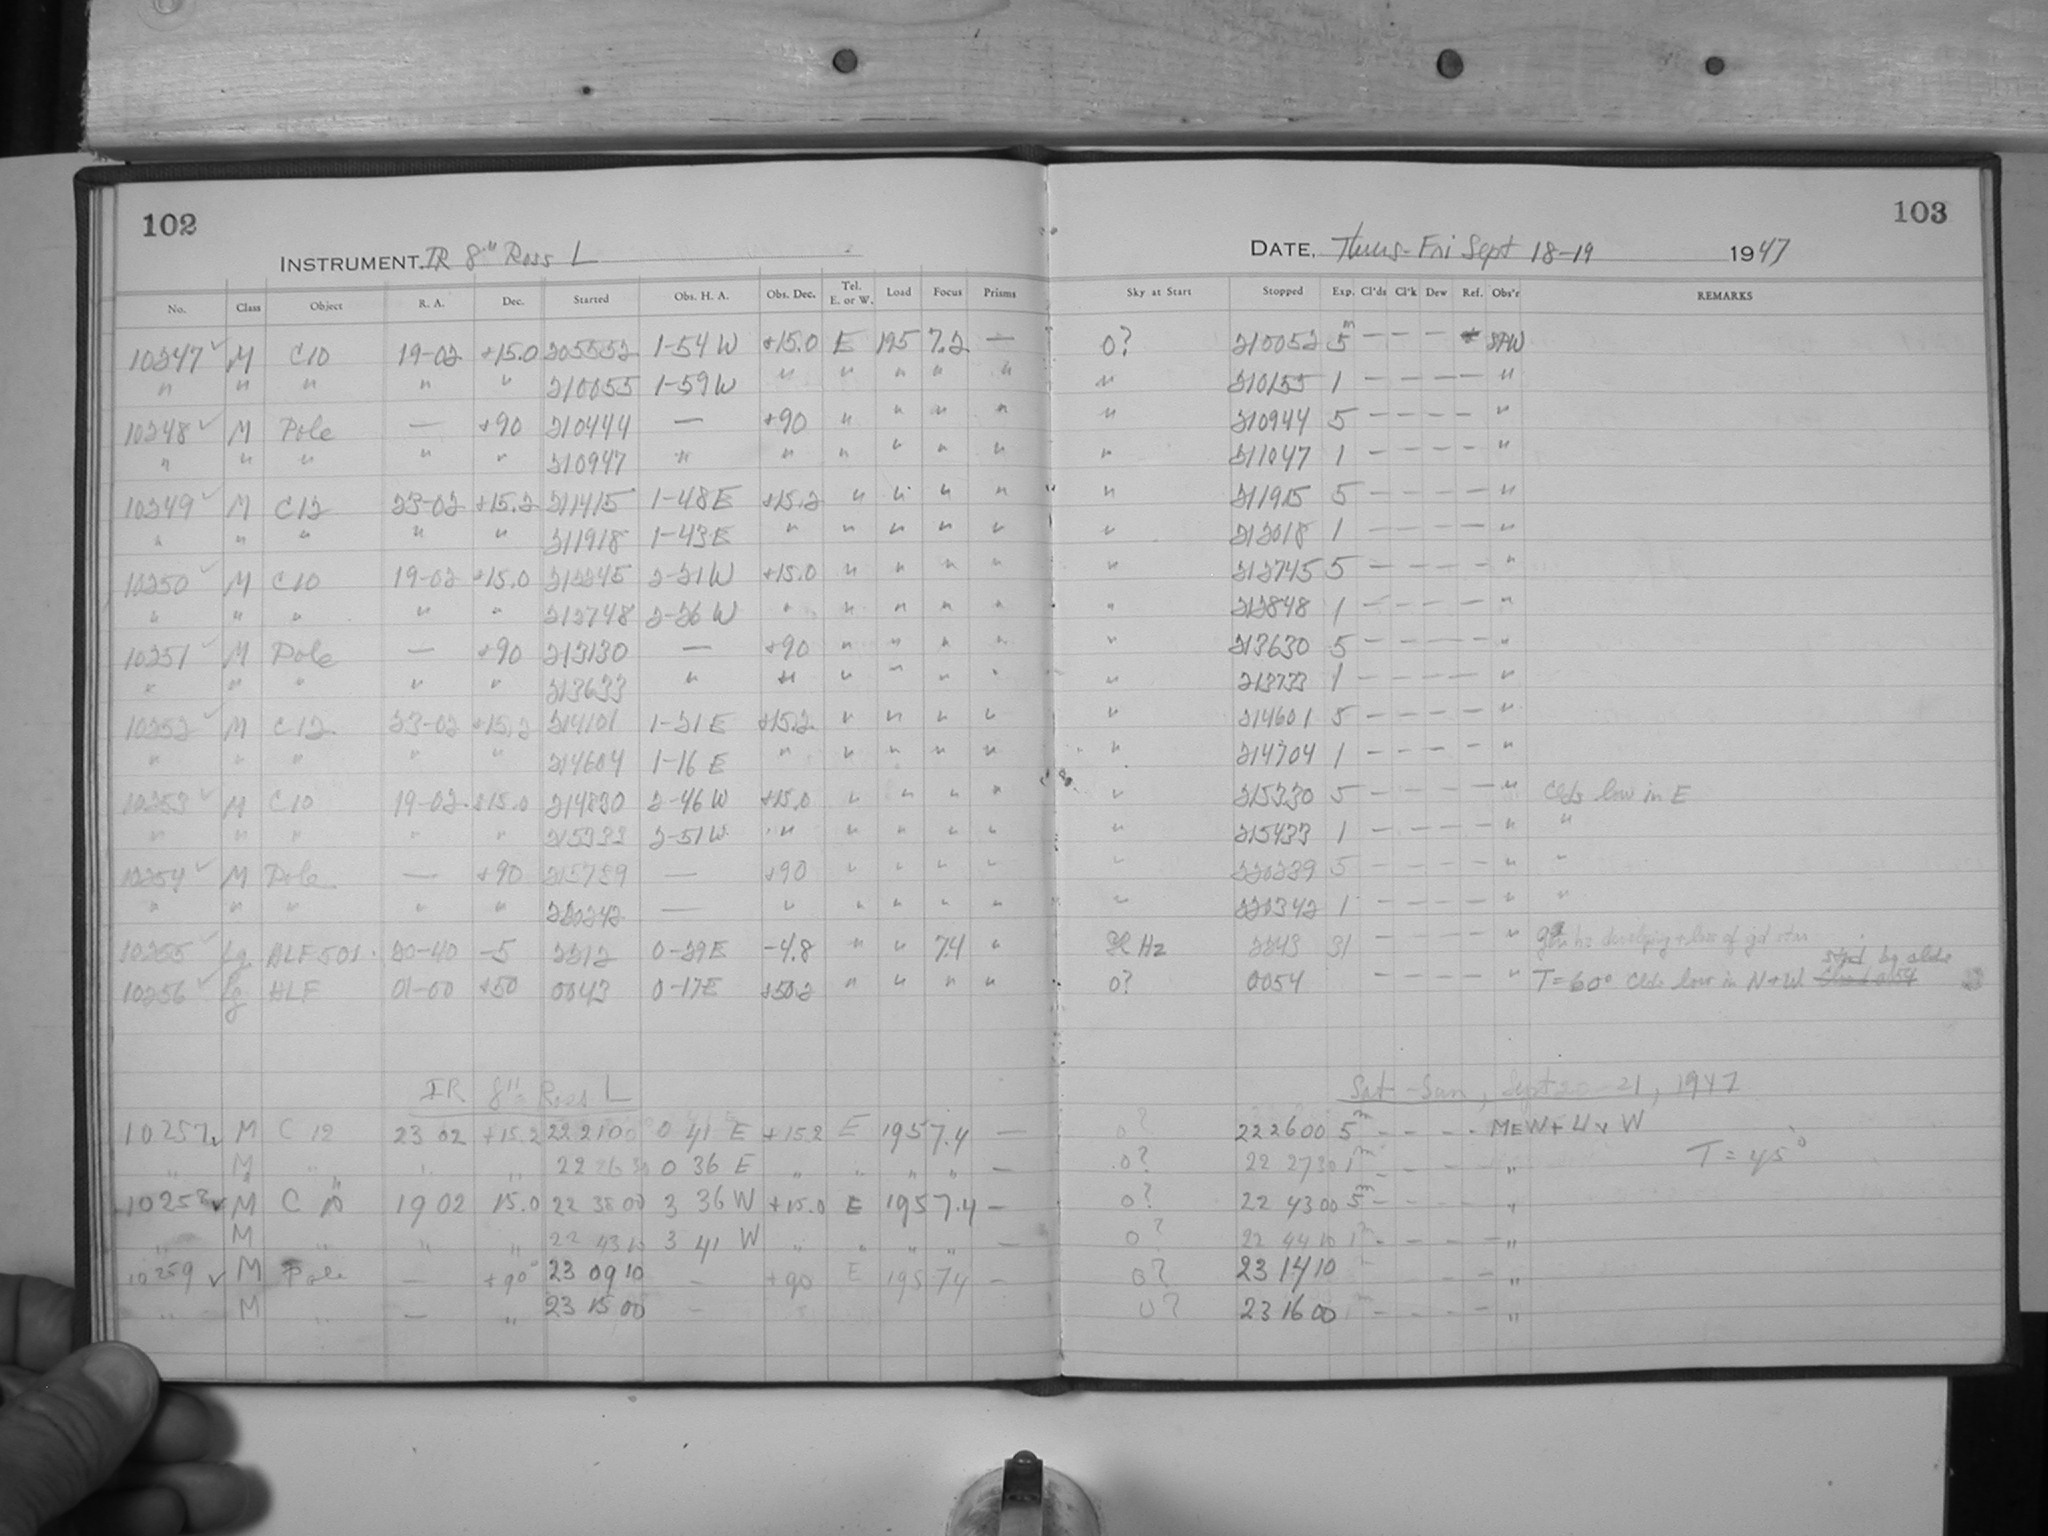 102
INSTRUMENT. IR 8" Ross L
No. Class Object R. A. Dec. Started Obs. H. A. Obs. Dec. Tel. E. or W. Load Focus Prisms
10247 ✓ M C10 19-02 +15.0 205552 1-54 W +15.0 E 195 7.2 —
" " " " " 210055 1-59 W " " " " "
10248 ✓ M Pole — +90 210444 — +90 " " " "
" " " " " 210947 " " " " " "
10249 ✓ M C12 23-02 +15.2 211415 1-48 E +15.2 " " " "
" " " " " 211918 1-43 E " " " " "
10250 ✓ M C10 19-02 +15.0 212245 2-21 W +15.0 " " " "
" " " " " 212748 2-26 W " " " " "
10251 ✓ M Pole — +90 213130 — +90 " " " "
" " " " " 213633 " " " " " "
10252 ✓ M C12 23-02 +15.2 214101 1-21 E +15.2 " " " "
" " " " " 214604 1-16 E " " " " "
10253 ✓ M C10 19-02 +15.0 214830 2-46 W +15.0 " " " "
" " " " " 215333 2-51 W " " " " "
10254 ✓ M Pole — +90 215739 — +90 " " " "
" " " " " 220242 — " " " " "
10255 ✓ fg HLF 501 20-40 -5 2212 0-29 E -4.8 " " 7.4 "
10256 ✓ fg HLF 01-00 +50 0043 0-17 E +50.2 " " " "
IR 8" Ross L
10257 ✓ M C 12 23 02 +15.2 22 21 00 0 41 E +15.2 E 195 7.4 —
" M " " " 22 26 30 0 36 E " " " " —
10258 ✓ M C 10 19 02 15.0 22 38 00 3 36 W +15.0 E 195 7.4 —
" M " " " 22 43 10 3 41 W " " " " —
10259 ✓ M Pole — +90 23 09 10 — +90 E 195 7.4 —
" M " — " 23 15 00 —
103
DATE, Thurs-Fri Sept 18-19 1947
Sky at Start Stopped Exp. Cl'ds Cl'k Dew Ref. Obs'r REMARKS
0? 210052 5m — — — SHW
" 210155 1 — — — — "
" 210944 5 — — — — "
" 211047 1 — — — — "
" 211915 5 — — — — "
" 212018 1 — — — — "
" 212745 5 — — — — "
" 212848 1 — — — — "
" 213630 5 — — — — "
" 213733 1 — — — — "
" 214601 5 — — — — "
" 214704 1 — — — — "
" 215330 5 — — — — " Clds low in E
" 215433 1 — — — — " "
" 220239 5 — — — — " "
" 220342 1 — — — — " "
Hz 2243 31 — — — — " developing + loss of gd star
0? 0054 — — — — " T=60° Clds low in N+W. stpd by clds
Sat-Sun, Sept 20-21, 1947
0? 22 26 00 5m - - - - MEW + W
0? 22 27 30 1m - - - - " T = 45°
0? 22 43 00 5m - - - - "
0? 22 44 10 1m - - - - "
0? 23 14 10 - - - - "
0? 23 16 00 1m - - - - "